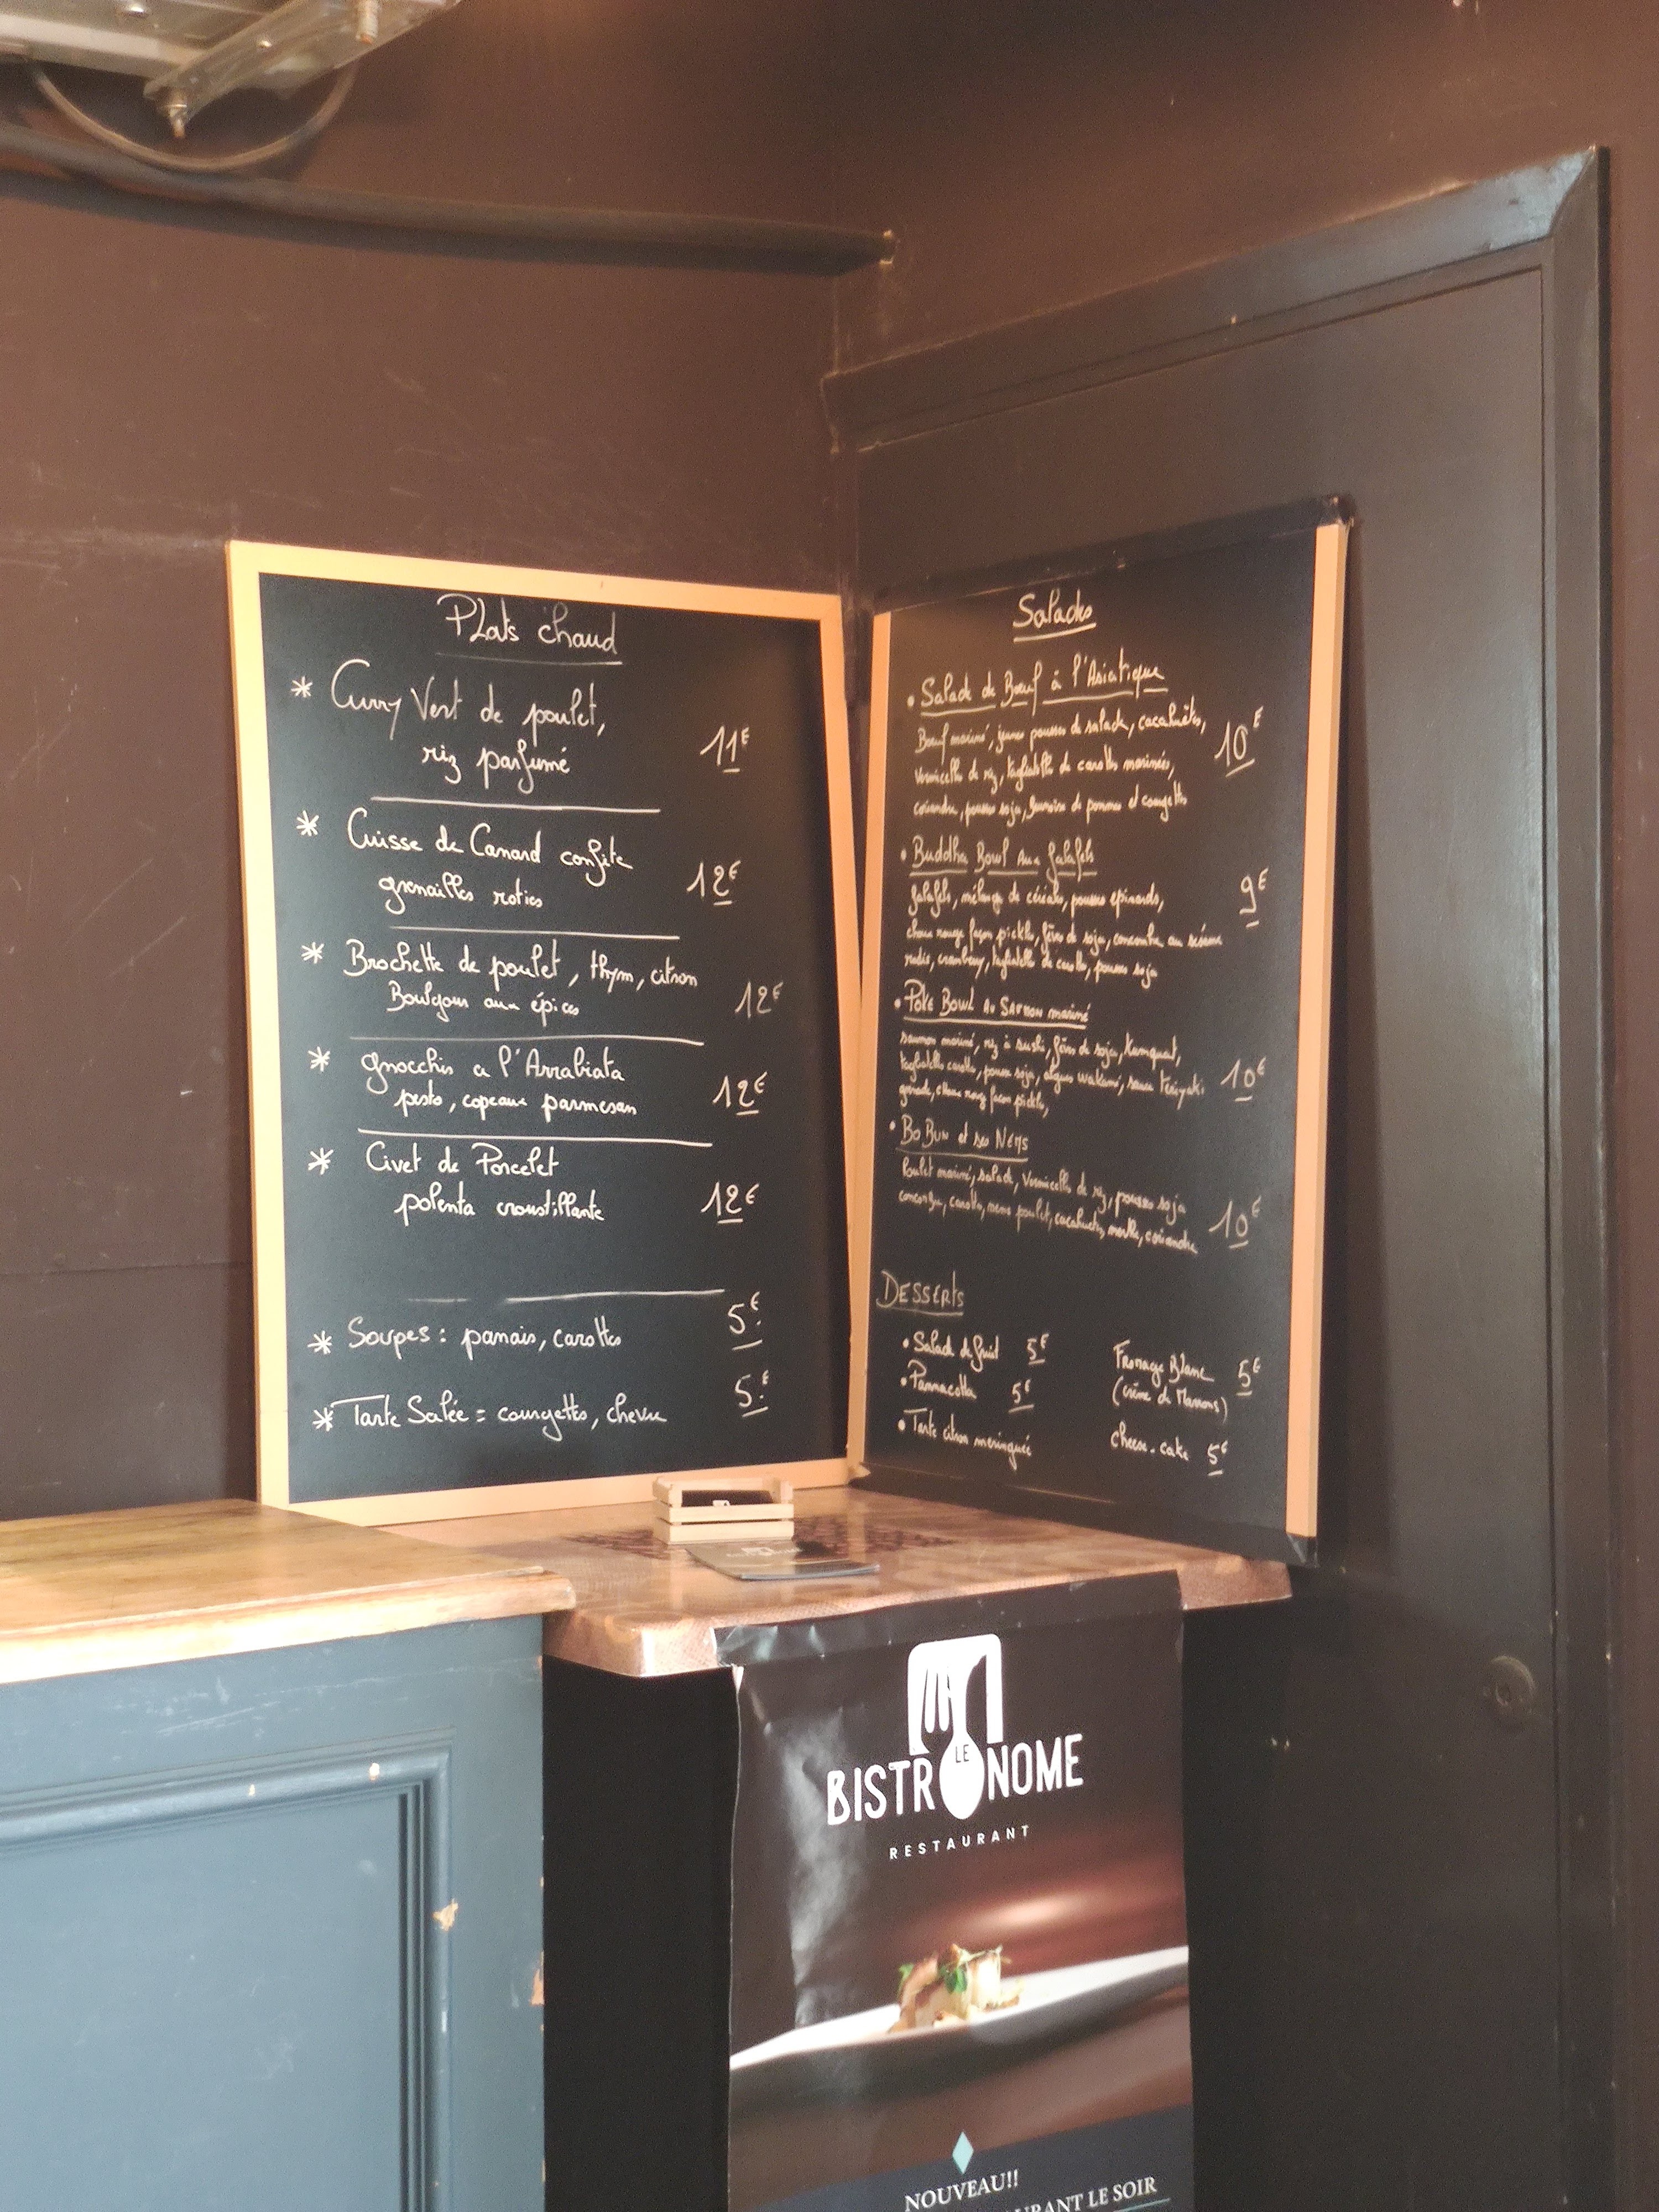 Plats chaud
* Curry Vert de poulet,
riz parfumé 11€
* Cuisse de Canard confite
grenailles roties 12€
* Brochette de poulet, thym, citron
Boulgour aux épices 12€
* gnocchis a l'Arrabiata
pesto, copeaux parmesan 12€
* Civet de Porcelet
polenta croustillante 12€
* Soupes : panais, carottes 5€
* Tarte Salée = courgettes, chevre 5€
Salades
• Salade de Bœuf à l'Asiatique
Bœuf mariné, jeunes pousses de salade, cacahuètes,
vermicelles de riz, tagliatelles de carottes marinées, 10€
coriandre, pousses soja, de pommes et courgettes
• Buddha Bowl aux falafels
falafels, mélange de céréales, pousses épinards, 9€
choux rouge façon pickles, fèves de soja, concombre au sésame
radis, cranberry, tagliatelles de carottes, pousses soja
• Poke Bowl au Saumon mariné
saumon mariné, riz à sushi, fèves de soja, kumquat,
tagliatelles carottes, pousses soja, algues wakamé, sauce teriyaki 10€
grenade, choux rouge façon pickles,
• Bo Bun et ses Nems
Poulet mariné, salade, vermicelles de riz, pousses soja
concombre, carottes, nems poulet, cacahuètes, menthe, coriandre 10€
Desserts
• Salade de fruit 5€
• Pannacotta 5€
• Tarte citron meringuée
Fromage Blanc 5€
(crème de Marrons)
cheese-cake 5€
LE
BISTRONOME
RESTAURANT
NOUVEAU!!
LE SOIR